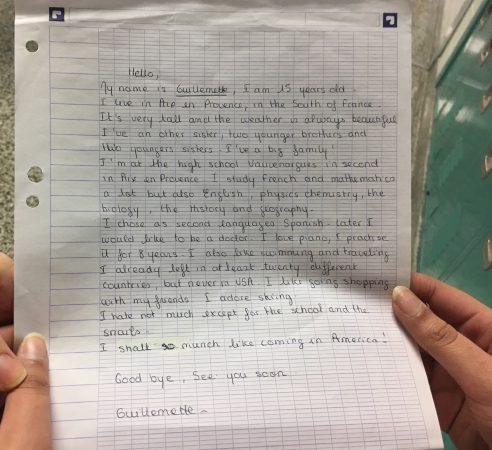 Hello,
My name is Guillemette, I am 15 years old.
I live in Aix en Provence, in the South of France.
It's very tall and the weather is always beautiful
I've an other sister, two younger brothers and
two youngers sisters. I've a big family!
I'm at the high school Vauvenargues in second
in Aix en Provence. I study french and mathematics
a lot but also English, physics chemistry, the
biology, the History and geography.
I chose as second languages Spanish. Later I
would like to be a doctor. I love piano, I practise
it for 8 years. I also like swimming and traveling
I already left in at least twenty different
countries, but never in USA. I like going shopping
with my friends. I adore skiing.
I hate not much except for the school and the
snails.
I shall so munch like coming in America!
Good bye, See you soon
Guillemette